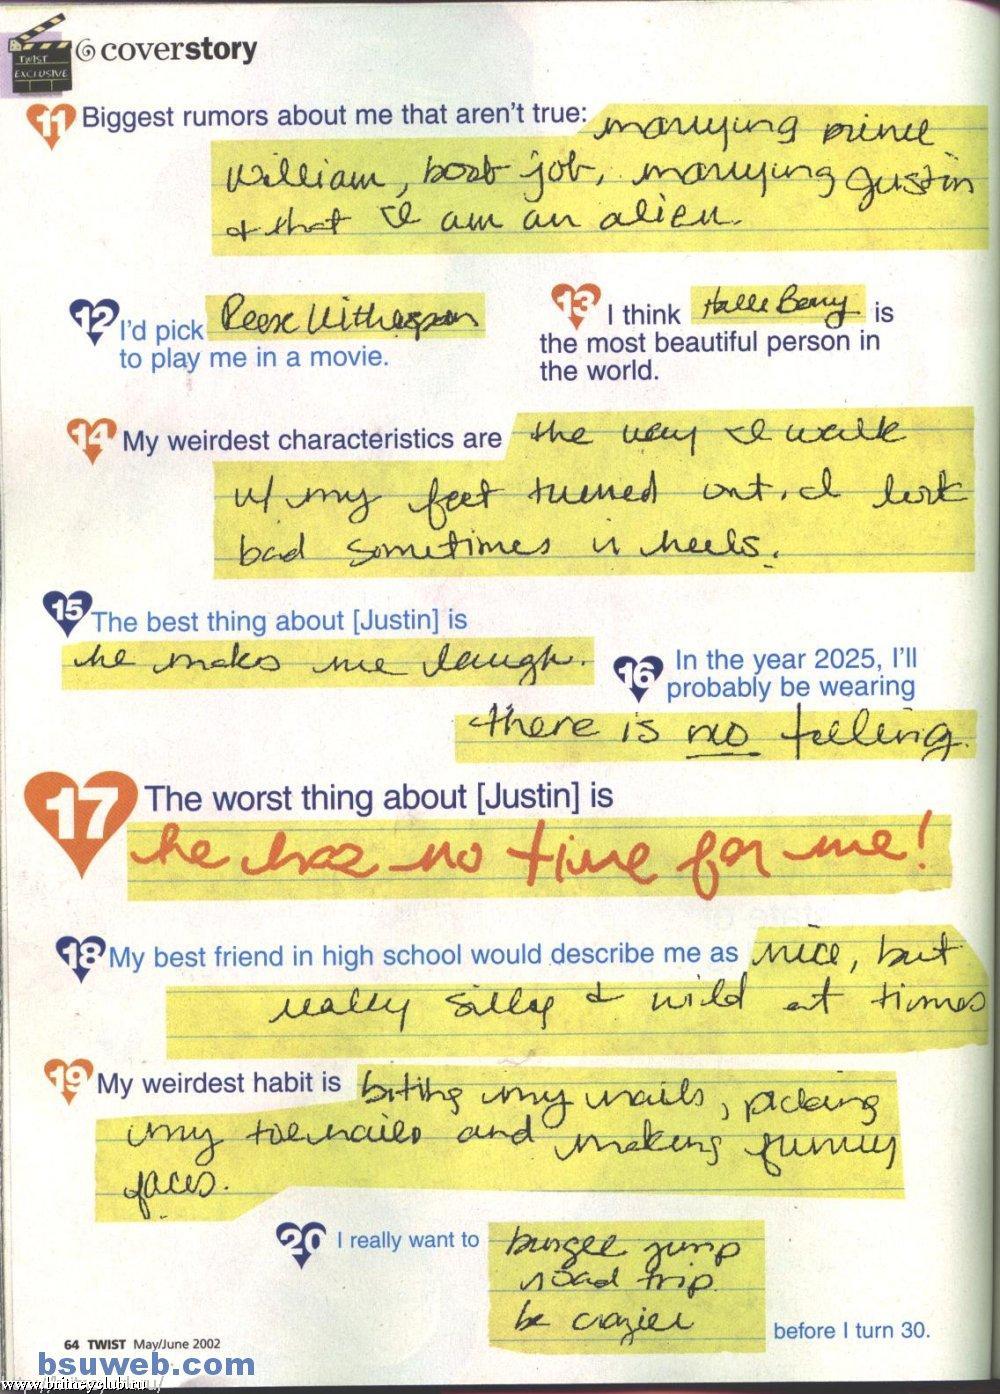 TWIST
EXCLUSIVE
coverstory
11 Biggest rumors about me that aren't true: marrying prince
William, boob job, marrying Justin
& that I am an alien.
12 I'd pick Reese Witherspoon
to play me in a movie.
13 I think Halle Berry is
the most beautiful person in
the world.
14 My weirdest characteristics are the way I walk
w/ my feet turned out. I look
bad sometimes in heels.
15 The best thing about [Justin] is
he makes me laugh.
16 In the year 2025, I'll
probably be wearing
there is no telling.
17 The worst thing about [Justin] is
he has no time for me!
18 My best friend in high school would describe me as nice, but
really silly & wild at times
19 My weirdest habit is biting my nails, picking
my toenails and making funny
faces.
20 I really want to bungee jump
road trip
be crazier
before I turn 30.
64 TWIST May/June 2002
bsuweb.com
www.britneyclub.ru/